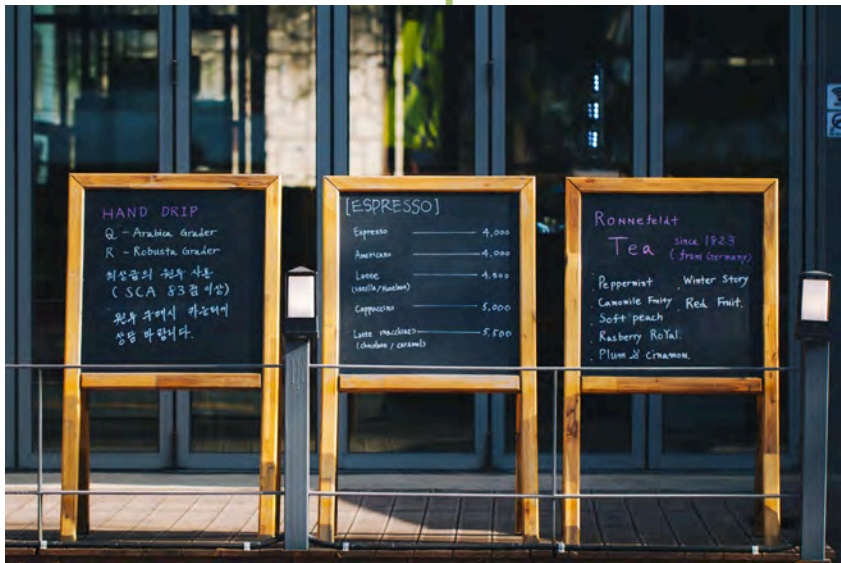 HAND DRIP
Q - Arabica Grader
R - Robusta Grader
최상급의 원두 사용
( SCA 83점 이상)
원두 구매시 카운터에
상담 바랍니다.
[ESPRESSO]
Espresso 4,000
Americano 4,000
Latte 4,500
(vanilla/Hazelnut)
Cappuccino 5,000
Latte macchiato 5,500
(chocolate / caramel)
RONNEfeldt
Tea since 1823
( from Germany)
. Peppermint . Winter Story
. Camomile Fruity . Red Fruit.
. Soft peach
. Rasberry RoYal.
. Plum & cinamon.